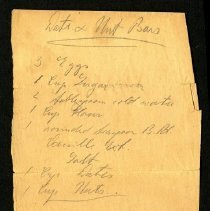 Date & Nut Bars
3 Eggs
1 Cup Sugar
2 tablespoon cold water
1 Cup Flour
1 rounded teaspoon B. Pd.
Vanilla Ext.
Salt
1 Cup Dates
1 Cup Nuts.